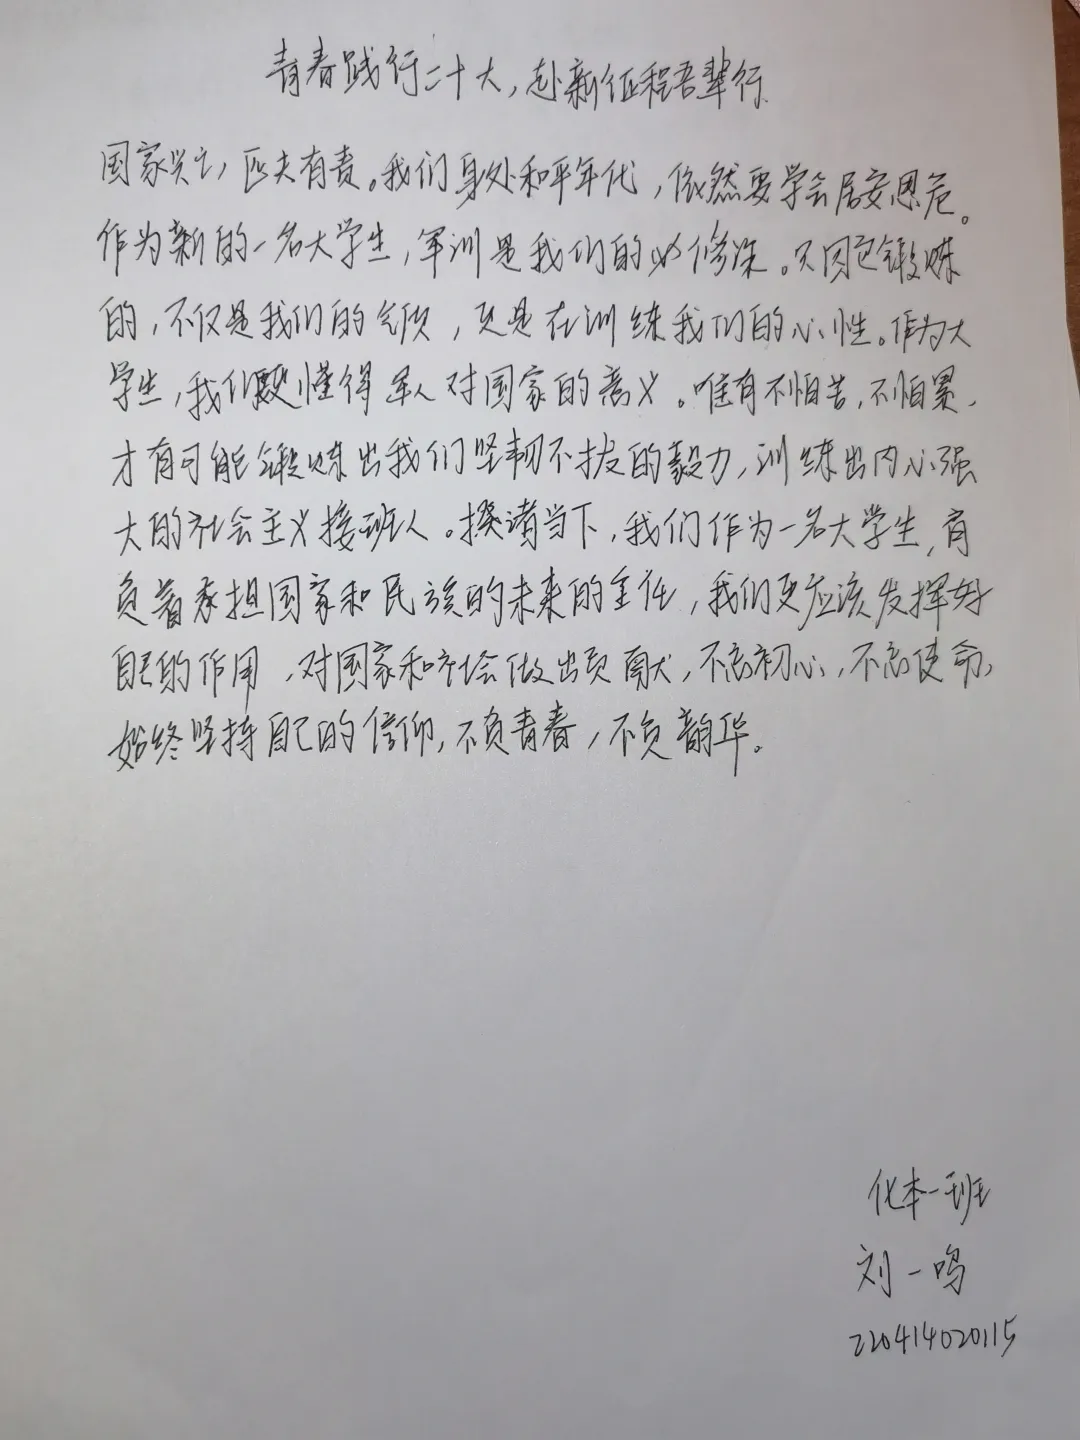 青春践行二十大，赴新征程吾辈行
国家兴亡，匹夫有责。我们身处和平年代，依然要学会居安思危。
作为新的一名大学生，军训是我们的必修课。只因它锻炼
的，不仅是我们的气质，更是在训练我们的心性。作为大
学生，我们更懂得军人对国家的意义。唯有不怕苦，不怕累，
才有可能锻炼出我们坚韧不拔的毅力，训练出内心强
大的社会主义接班人。揆诸当下，我们作为一名大学生，肩
负着承担国家和民族的未来的重任，我们更应该发挥好
自己的作用，对国家和社会做出贡献，不忘初心，不忘使命，
始终坚持自己的信仰，不负青春，不负韵华。
化本一班
刘一鸣
220414020115